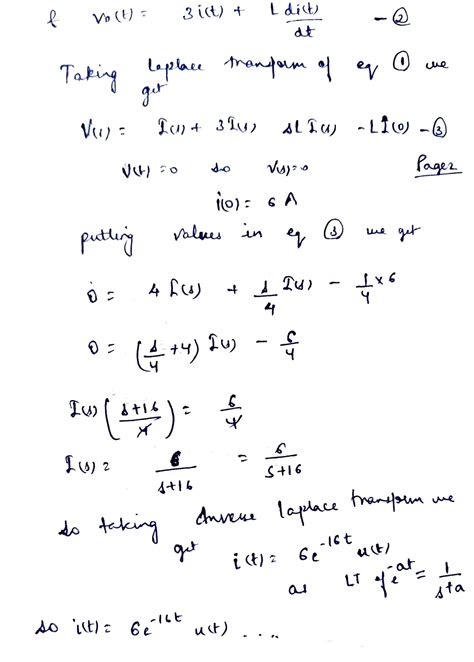 & v₀(t) = 3i(t) + L di(t)/dt - ②
Taking Laplace transform of eq ① we
get
V(s) = I(s) + 3I(s) sLI(s) - LI(0) - ③
V(t) = 0 so V(s) = 0 Page 2
i(0) = 6 A
putting values in eq ③ we get
0 = 4 I(s) + s/4 I(s) - 1/4 × 6
0 = (s/4 + 4) I(s) - 6/4
I(s) (s+16/4) = 6/4
I(s) = 6/s+16 = 6/s+16
So taking Inverse laplace transform we
get i(t) = 6e^-16t u(t)
as LT of e^-at = 1/s+a
so i(t) = 6e^-16t u(t) ....